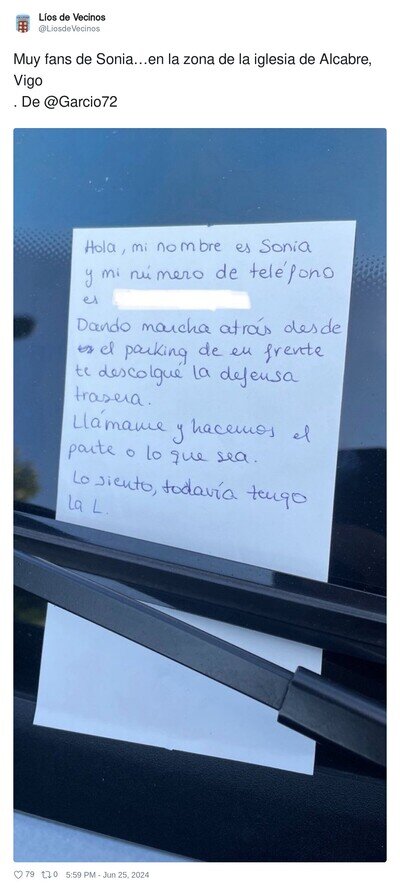 Líos de Vecinos
@LiosdeVecinos
Muy fans de Sonia…en la zona de la iglesia de Alcabre,
Vigo
. De @Garcio72
Hola, mi nombre es Sonia
y mi número de teléfono
es
Dando marcha atrás desde
el parking de en frente
te descolgué la defensa
trasera.
Llámame y hacemos el
parte o lo que sea.
Lo siento, todavía tengo
la L.
79 0 5:59 PM - Jun 25, 2024